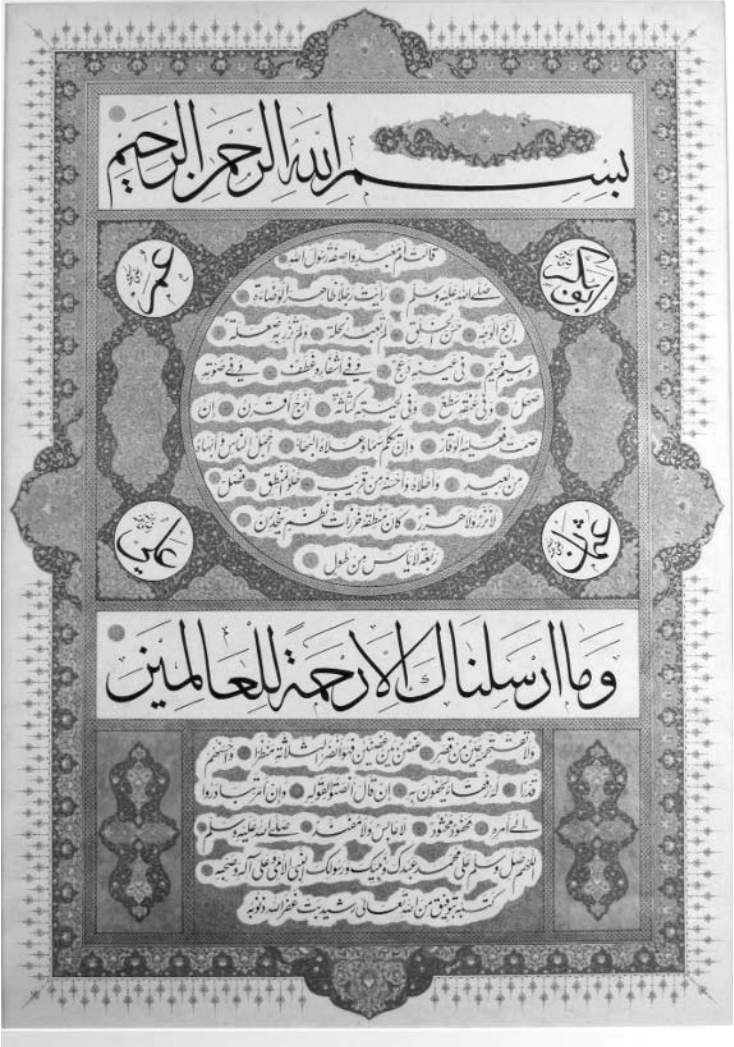 بسم الله الرحمن الرحيم
ابو بكر
عمر
قالت ام معبد واصفة رسول الله
صلى الله عليه وسلم رأيت رجلا طاهر الوضاءة
أبلج الوجه حسن الخلق لم تعبه نحلة ولم تزر به صعلة
وسيم قسيم في عينيه دعج وفي أشفاره غطف وفي صوته
صهل وفي عنقه سطع وفي لحيته كثاثة أزج أقرن إن
صمت فعليه الوقار وإن تكلم سما وعلاه البهاء أجمل الناس وأبهاه
من بعيد وأحلاه وأحسنه من قريب حلو المنطق فصل
لا نزر ولا هذر كأن منطقه خرزات نظم يتحدرن
ربعة لا يأس من طول
عثمان
علي
وما ارسلناك الا رحمة للعالمين
ولا تقتحمه عين من قصر غصن بين غصنين فهو أنضر الثلاثة منظرا وأحسنهم
قدرا له رفقاء يحفون به إن قال أنصتوا لقوله وإن أمر تبادروا
الى أمره محفود محشود لا عابس ولا مفند صلى الله عليه وسلم
اللهم صل وسلم على محمد عبدك ونبيك ورسولك النبي الأمي وعلى آله وصحبه
كتبه بتوفيق من الله تعالى رشيد بت غفر الله ذنوبه